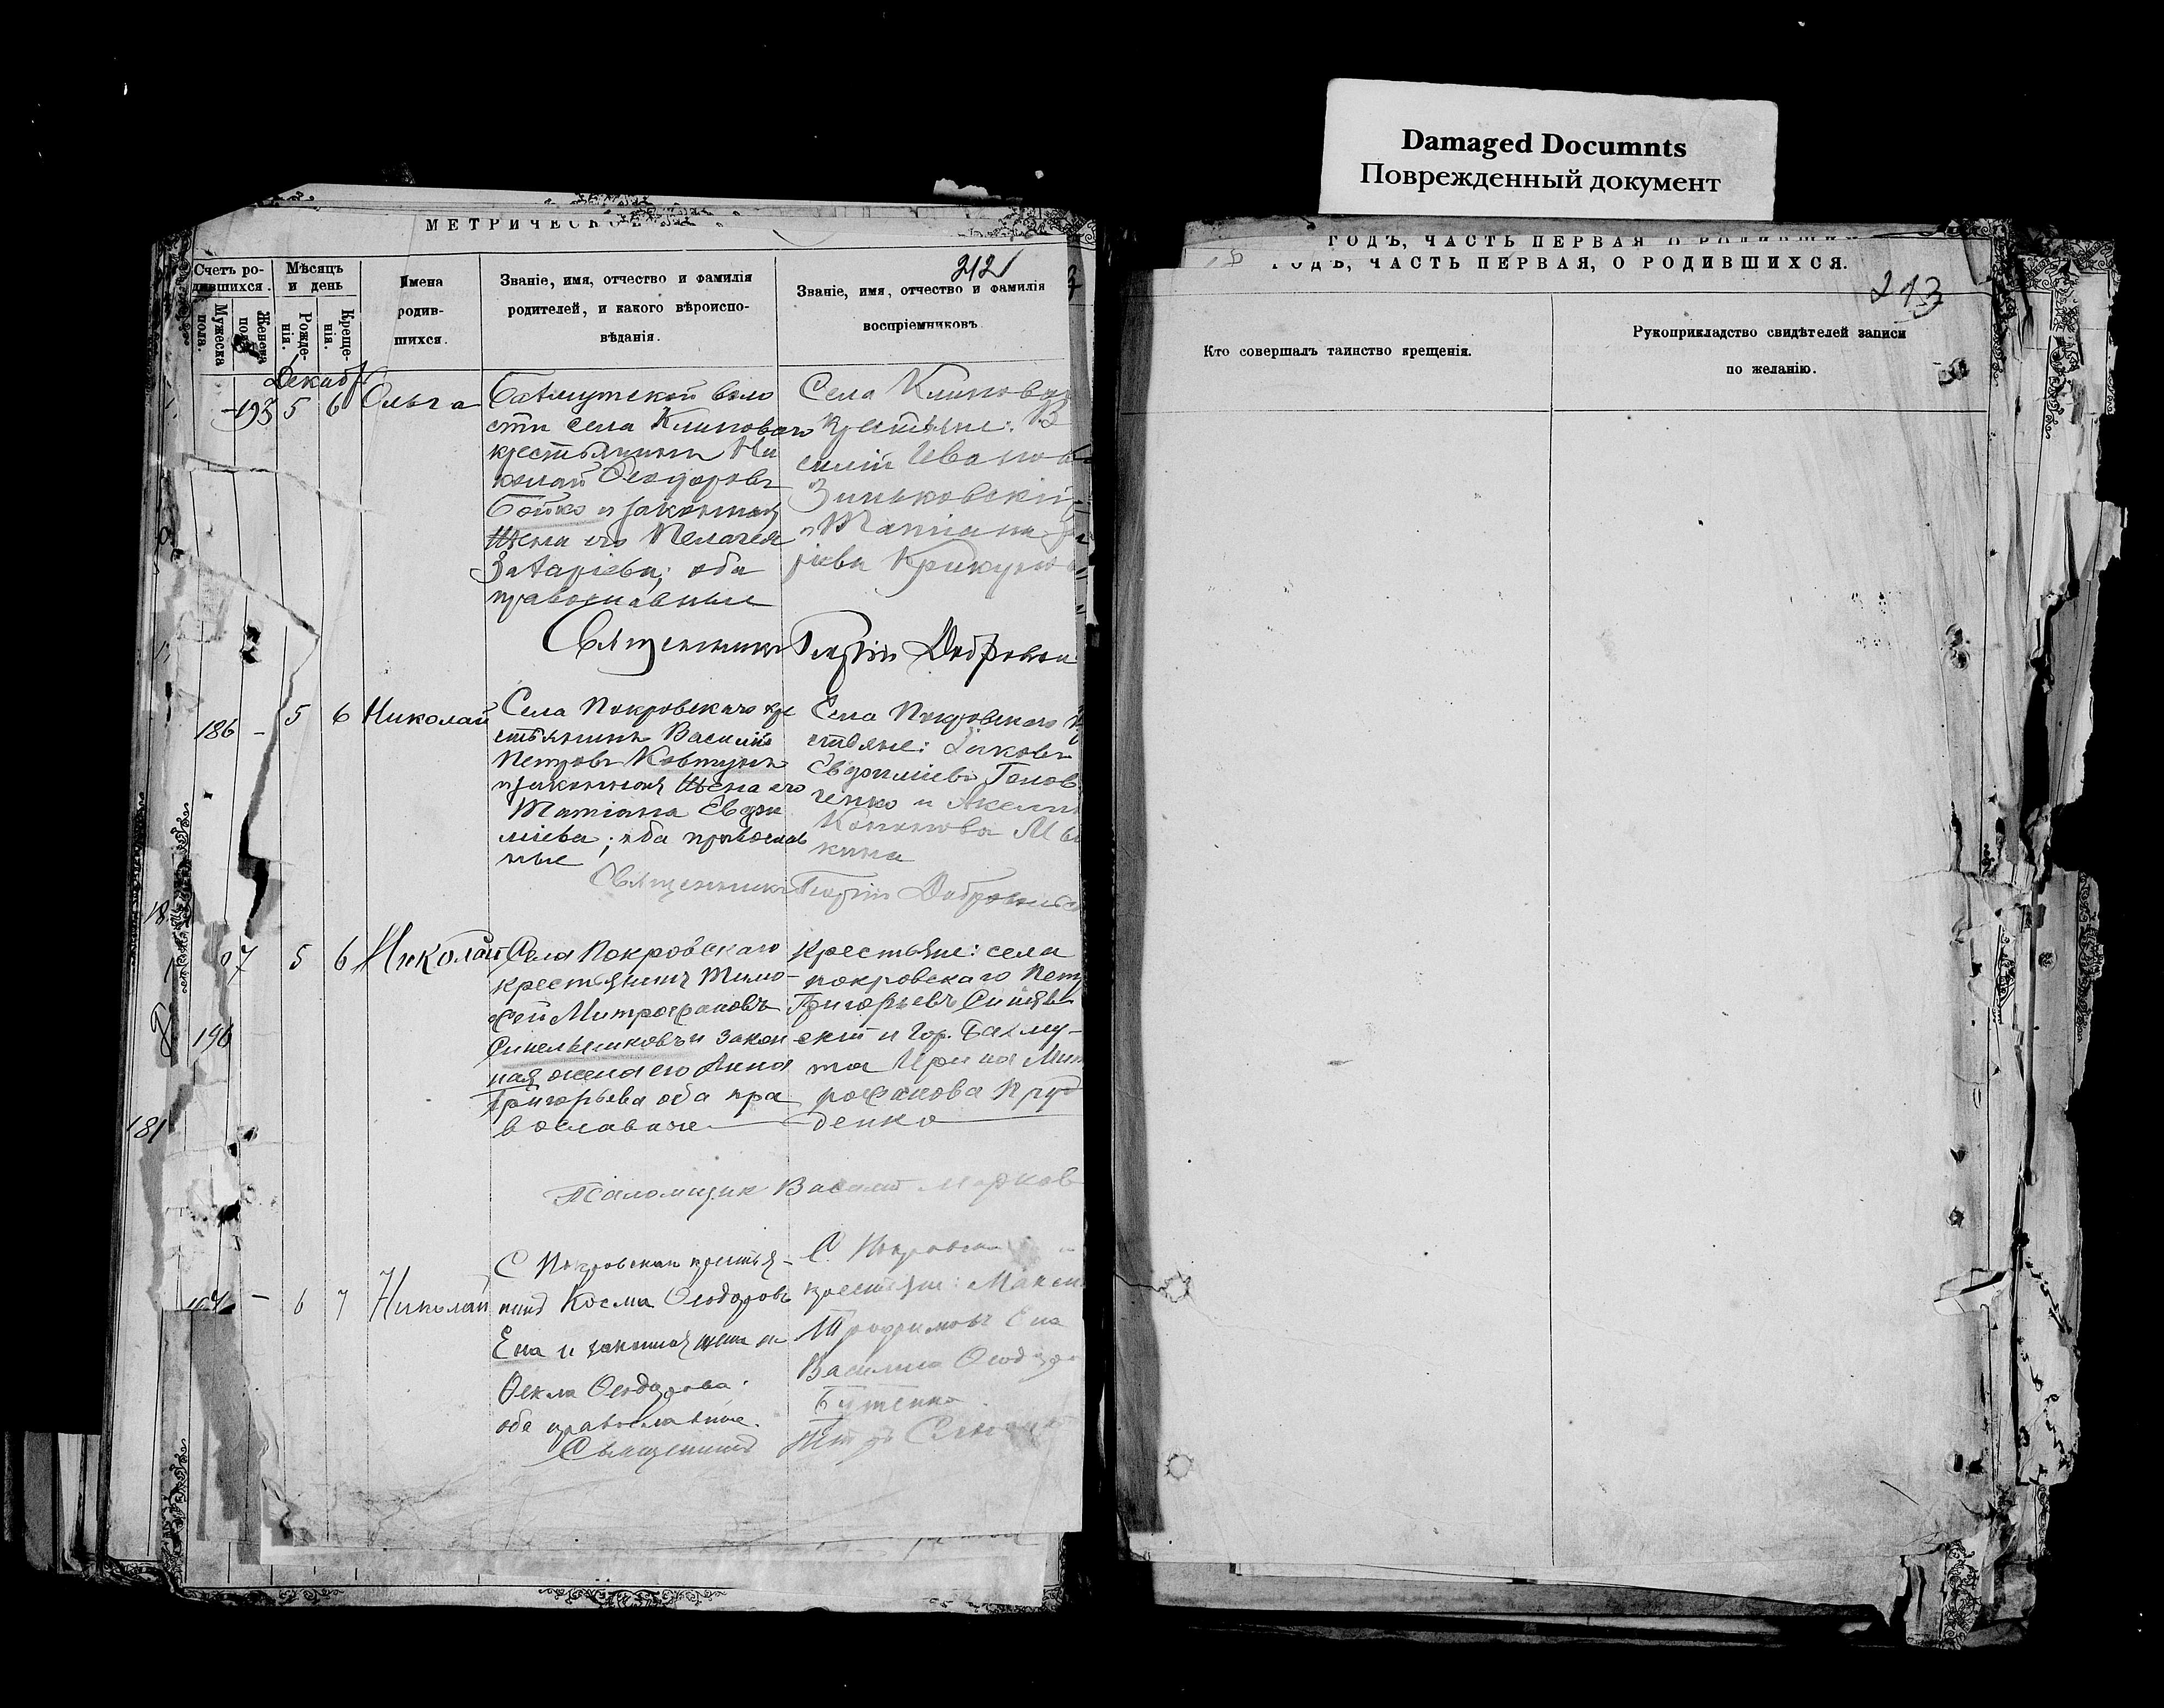 Damaged Documnts
Поврежденный документ
МЕТРИЧЕСКО
212
Счетъ ро-
дившихся.
Мужеска
пола.
Женска
пола.
Мѣсяцъ
и день
Рожде-
нія.
Креще-
нія.
Имена
родив-
шихся.
Званіе, имя, отчество и фамилія
родителей, и какого вѣроиспо-
вѣданія.
Званіе, имя, отчество и фамилія
воспріемниковъ.
Декабр
193 5 6 Ольга
Бахмутской воло
сти села Клиноваго
крестьянинъ Ни
колай Ѳеодоровъ
Бойко и законная
жена его Пелагея
Захаріева; оба
православные
Села Клинова
крестьяне: В
силій Иванов
Зиньковскій
и Татіана
ріева Крикуно
Священникъ Георгій Доброволь
186 - 5 6 Николай
Села Покровскаго кре
стьянинъ Василій
Петровъ Ковтунъ
и законная жена его
Татіана Евдоки
міева; оба православ
ные
Села Покровскаго к
стьяне: Яковъ
Евдокиміевъ Голов
ченко и Акелин
Кононова М
кина
Священникъ Георгій Добровольск
87 5 6 Николай
Села Покровскаго
крестьянинъ Тимо-
фей Митрофановъ
Синельниковъ и закон
ная жена его Анна
Григорьева оба пра
вославные
Крестьяне: села
покровскаго Петр
Григорьевъ Синявь
скій и Гор. Бахму-
та Ирина Мит
рофанова Пруд
денко
196
181
Псаломщик Василій Марков
- 6 7 Николай
С Покровскаго крестья-
нинъ Косма Ѳеодоровъ
Ена и законная жена его
Ѳекла Ѳеодорова.
оба православные.
С. Покровска
крестьяне: Макси
Трофимовъ Ена
Василиса Ѳеодоро
Бутенко
Священникъ Петръ
ГОДЪ, ЧАСТЬ ПЕРВАЯ, О РОДИВШИ
ГОДЪ, ЧАСТЬ ПЕРВАЯ, О РОДИВШИХСЯ.
213
Кто совершалъ таинство крещенія.
Рукоприкладство свидѣтелей записи
по желанію.